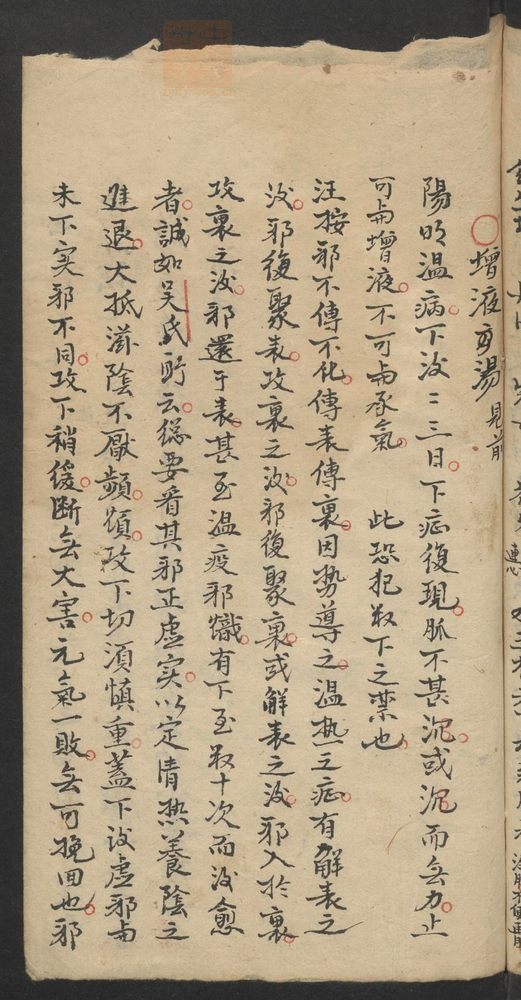 增液湯 見前
陽明温病下没二三日下症復現脈不甚沉或沉而無力止
可与增液不可与承氣 此恐犯数下之禁也
汪按邪不傳不化傳表傳裏因勢導之温热之症有解表之
没邪復聚表攻裏之没邪復聚裏或解表之没邪入於裏
攻裏之没邪還于表甚至温疫邪熾有下至数十次而没愈
者誠如吴氏所云總要看其邪正虚实以定清热養陰之
進退大抵滋陰不厭頻頻攻下切須慎重蓋下没虚邪与
未下实邪不同攻下稍緩断無大害元氣一敗無可挽回也邪